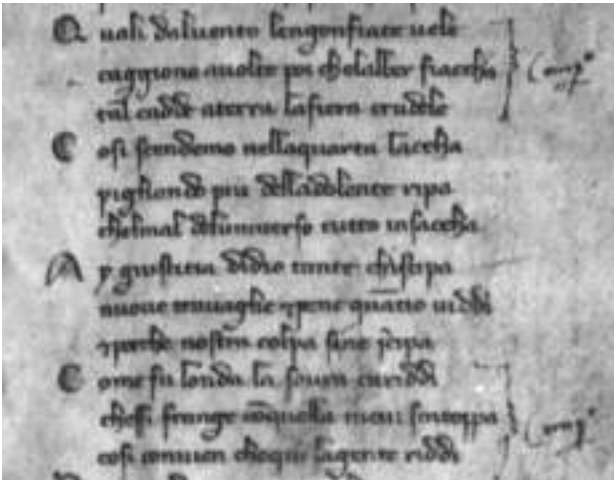 Quali daluento lengonfiate uele
caggiono auolte poi chelalber fiaccha
tal cadde aterra lafiera crudele
Cosi scendemo nellaquarta laccha
pigliando piu delladolente ripa
chelmal deluniuerso tutto insaccha
Ay giustitia didio tante chistipa
nuoue trauaglie & pene quanto uiddi
& perche nostra colpa sine scipa
Come fa londa la soura cariddi
chesi frange con quella incui sintoppa
cosi conuien chequi lagente riddi